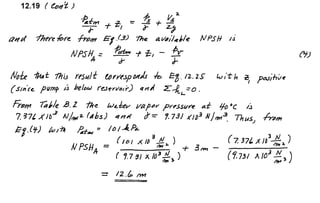 12.19 ( Con't )
Patm/γ + z₁ = ps/γ + Vs²/2g
and therefore from Eq.(3) The available NPSH is
NPSH_A = Patm/γ + z₁ - pv/γ (4)
Note that This result corresponds to Eq. 12.25 with z₁ positive
(since pump is below reservoir) and Σh_L = 0.
From Table B.2 The water vapor pressure at 40°C is
7.376 x10³ N/m² (abs) and γ = 9.731 x10³ N/m³. Thus, from
Eq.(4) with Patm = 101 kPa
NPSH_A = (101 x10³ N/m²)/(9.731 x10³ N/m³) + 3m - (7.376 x10³ N/m²)/(9.731 x10³ N/m³)
= 12.6 m